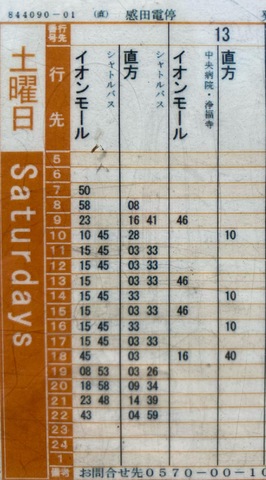 844090-01 (直) 感田電停
行先番号 13
土曜日
Saturdays
行先
イオンモール シャトルバス
直方 シャトルバス
イオンモール
直方 中央病院・浄福寺
5
6
7 50
8 58 08
9 23 16 41 46
10 10 45 28 10
11 15 45 03 33
12 15 45 03 33
13 15 45 03 33 46
14 15 45 33 10
15 15 45 03 33 46
16 15 45 33 10
17 15 45 03 33
18 45 03 16 40
19 08 53 03 26
20 18 58 09 34
21 23 48 14 39
22 43 04 59
23
24
1
備考 お問合せ先0570-00-10